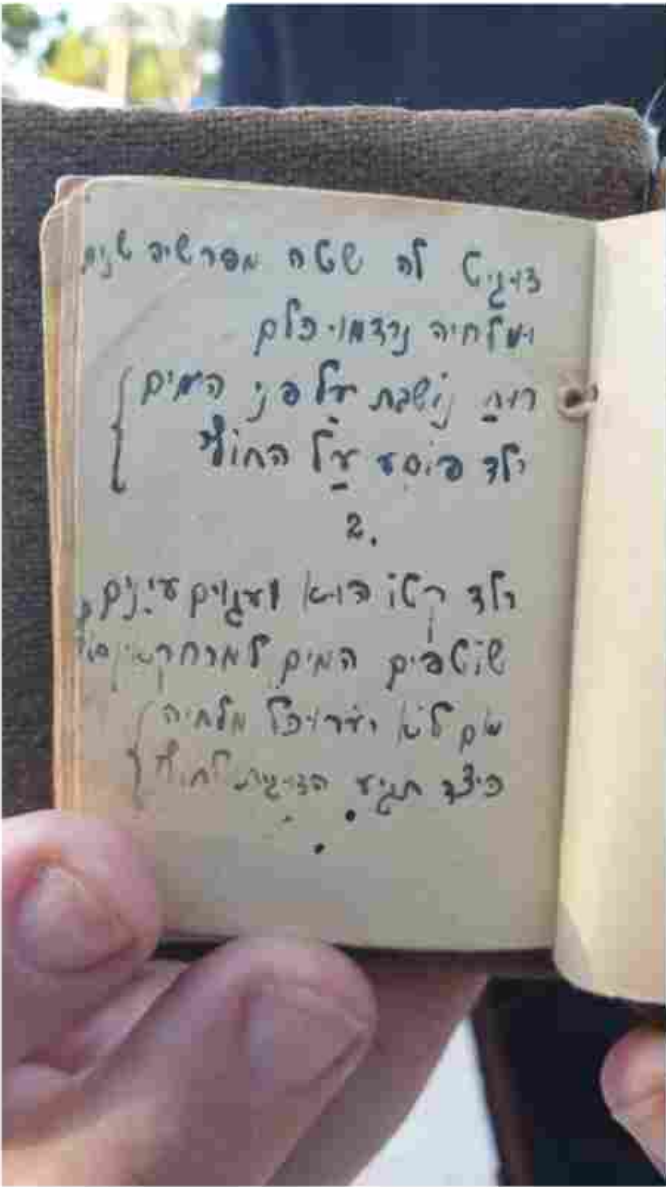 דוגית לה שטה מפרשיה שנים
ומלחיה נרדמו כלם
רוח נושבת על פני המים
ילד פוסע על החוף
2.
ילד קטן הוא ועגום עינים
שוטפים המים למרחק אין סוף
אם לא יעורו כל מלחיה
כיצד תגיע הדוגית לחוף